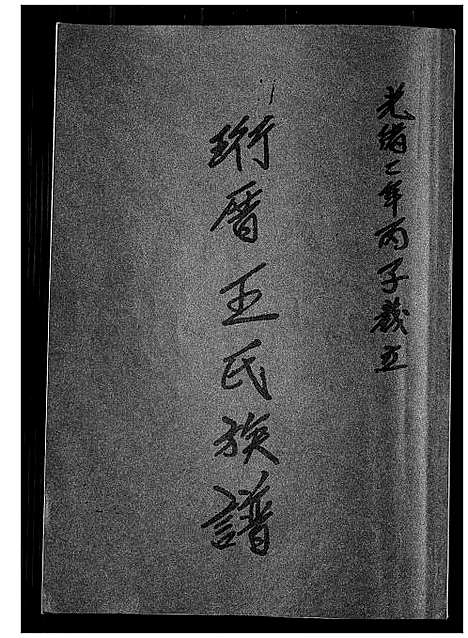 光緒二年丙子歲五
珩厝王氏族譜